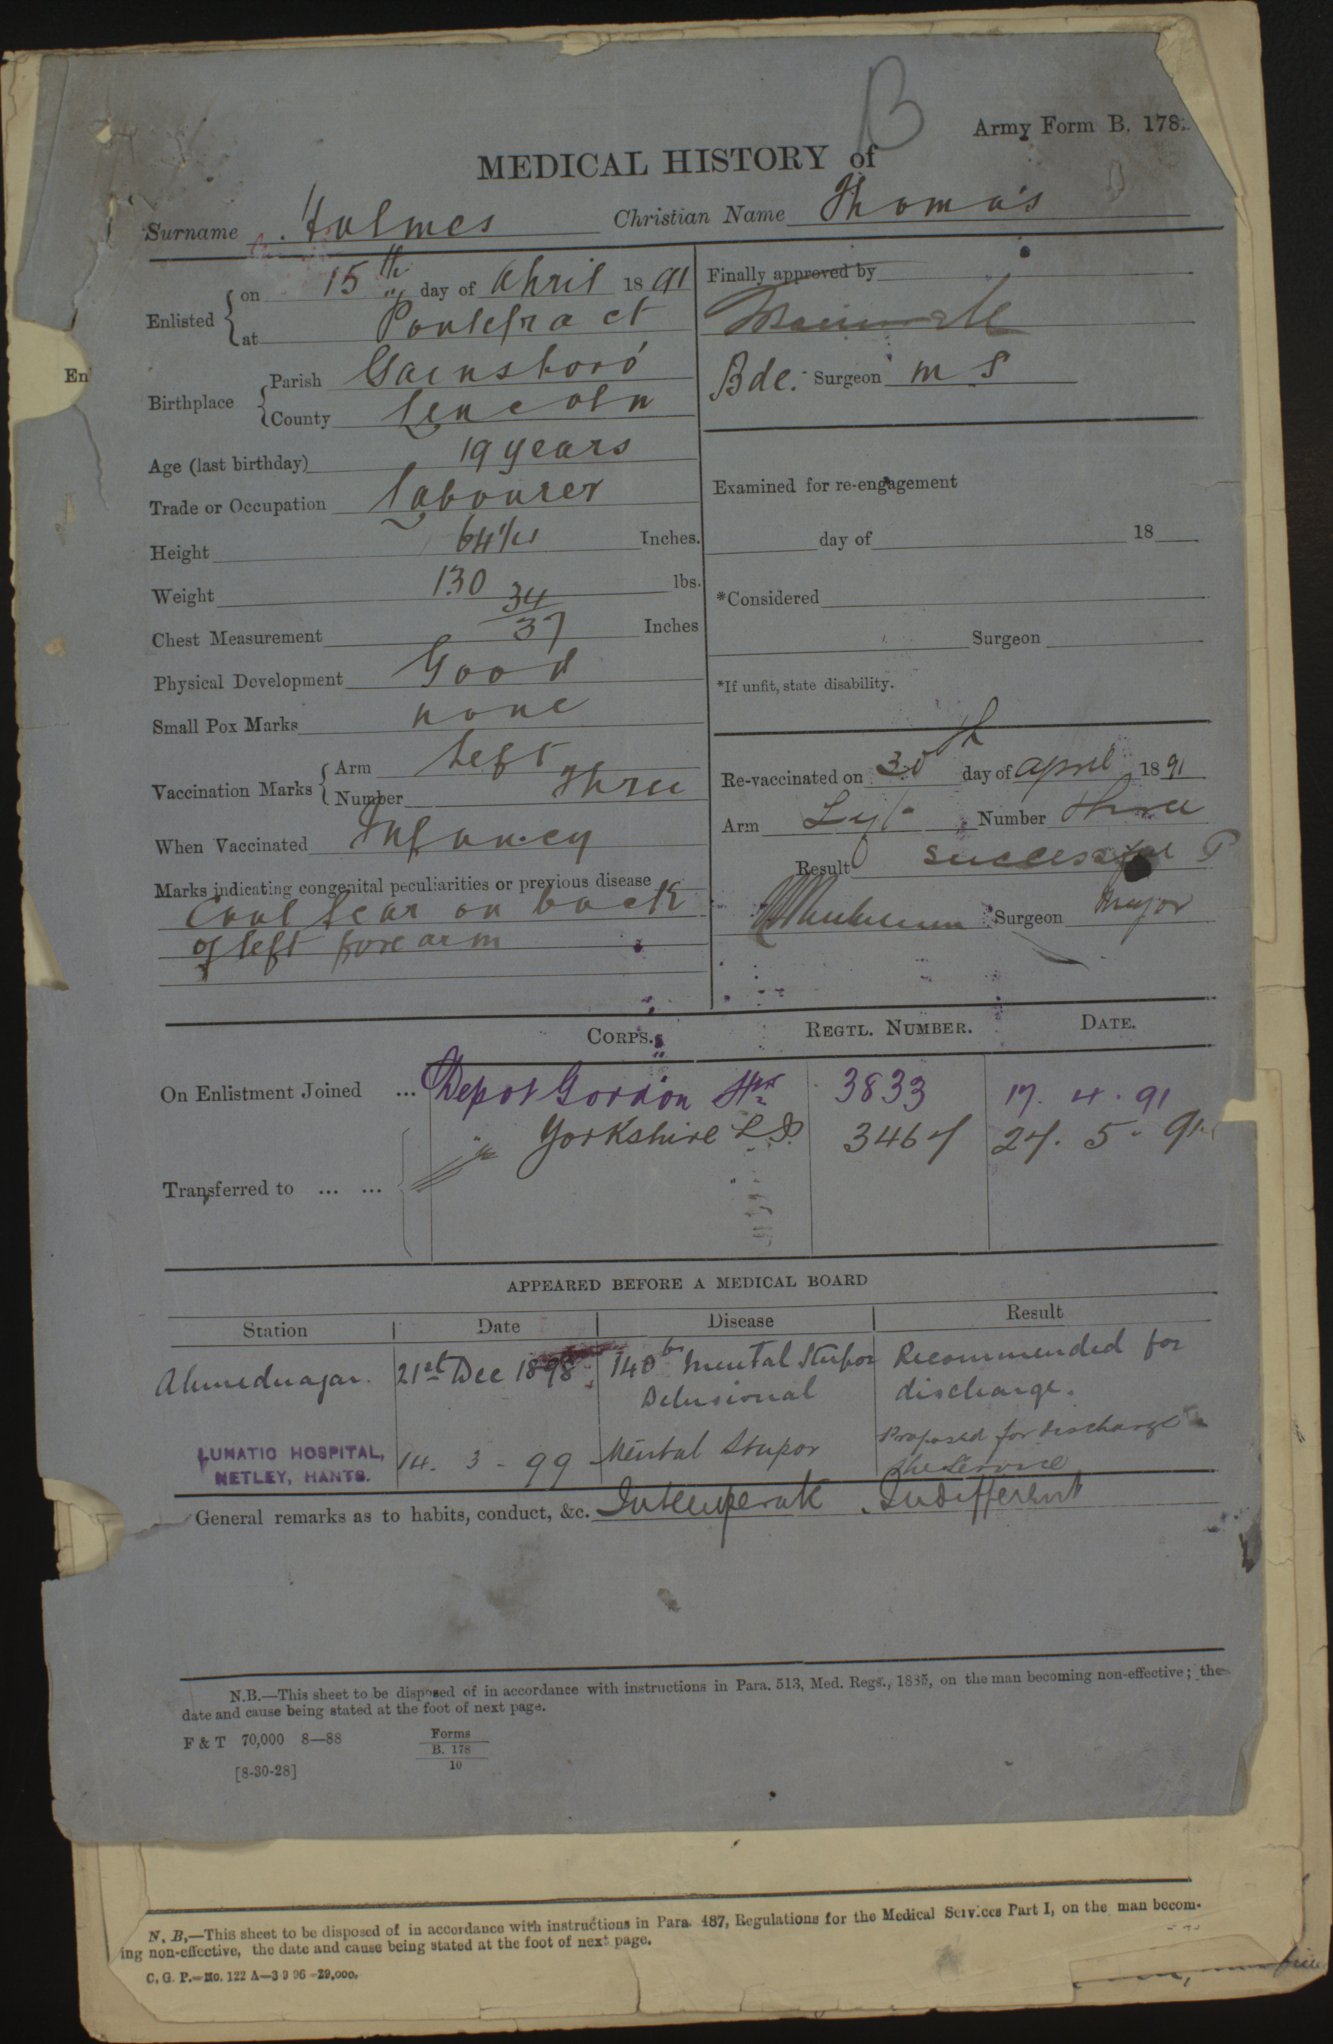 B
Army Form B. 178.
MEDICAL HISTORY of
Surname Holmes Christian Name Thomas
Enlisted on 15th day of April 1891
at Pontefract
Birthplace Parish Gainsboro'
County Lincoln
Age (last birthday) 19 years
Trade or Occupation Labourer
Height 64 Inches.
Weight 130 lbs.
Chest Measurement 34/37 Inches
Physical Development Good
Small Pox Marks none
Vaccination Marks Arm Left
Number Three
When Vaccinated Infancy
Marks indicating congenital peculiarities or previous disease
Coal Scar on back
of left fore arm
Finally approved by
Bde. Surgeon M S
Examined for re-engagement
day of 18
*Considered
Surgeon
*If unfit, state disability.
Re-vaccinated on 30th day of April 1891
Arm Left Number three
Result successful P
Surgeon Major
En
CORPS. REGTL. NUMBER. DATE.
On Enlistment Joined ... Depot Gordon Hrs 3833 17. 4. 91
Yorkshire L I 3467 27. 5. 91
Transferred to ... ...
APPEARED BEFORE A MEDICAL BOARD
Station Date Disease Result
Ahmednagar. 21st Dec 1898 140b Mental Stupor Recommended for
Delusional discharge.
LUNATIC HOSPITAL, 14. 3 - 99 Mental Stupor Proposed for discharge
NETLEY, HANTS. the Service
General remarks as to habits, conduct, &c. Intemperate Indifferent
N.B.—This sheet to be disposed of in accordance with instructions in Para. 513, Med. Regs., 1885, on the man becoming non-effective; the
date and cause being stated at the foot of next page.
F & T 70,000 8—88 Forms
B. 178
10
[8-30-28]
N. B,—This sheet to be disposed of in accordance with instructions in Para. 487, Regulations for the Medical Services Part I, on the man becom-
ing non-effective, the date and cause being stated at the foot of next page.
C. G. P.—No. 122 A—3 9 96—29,000.